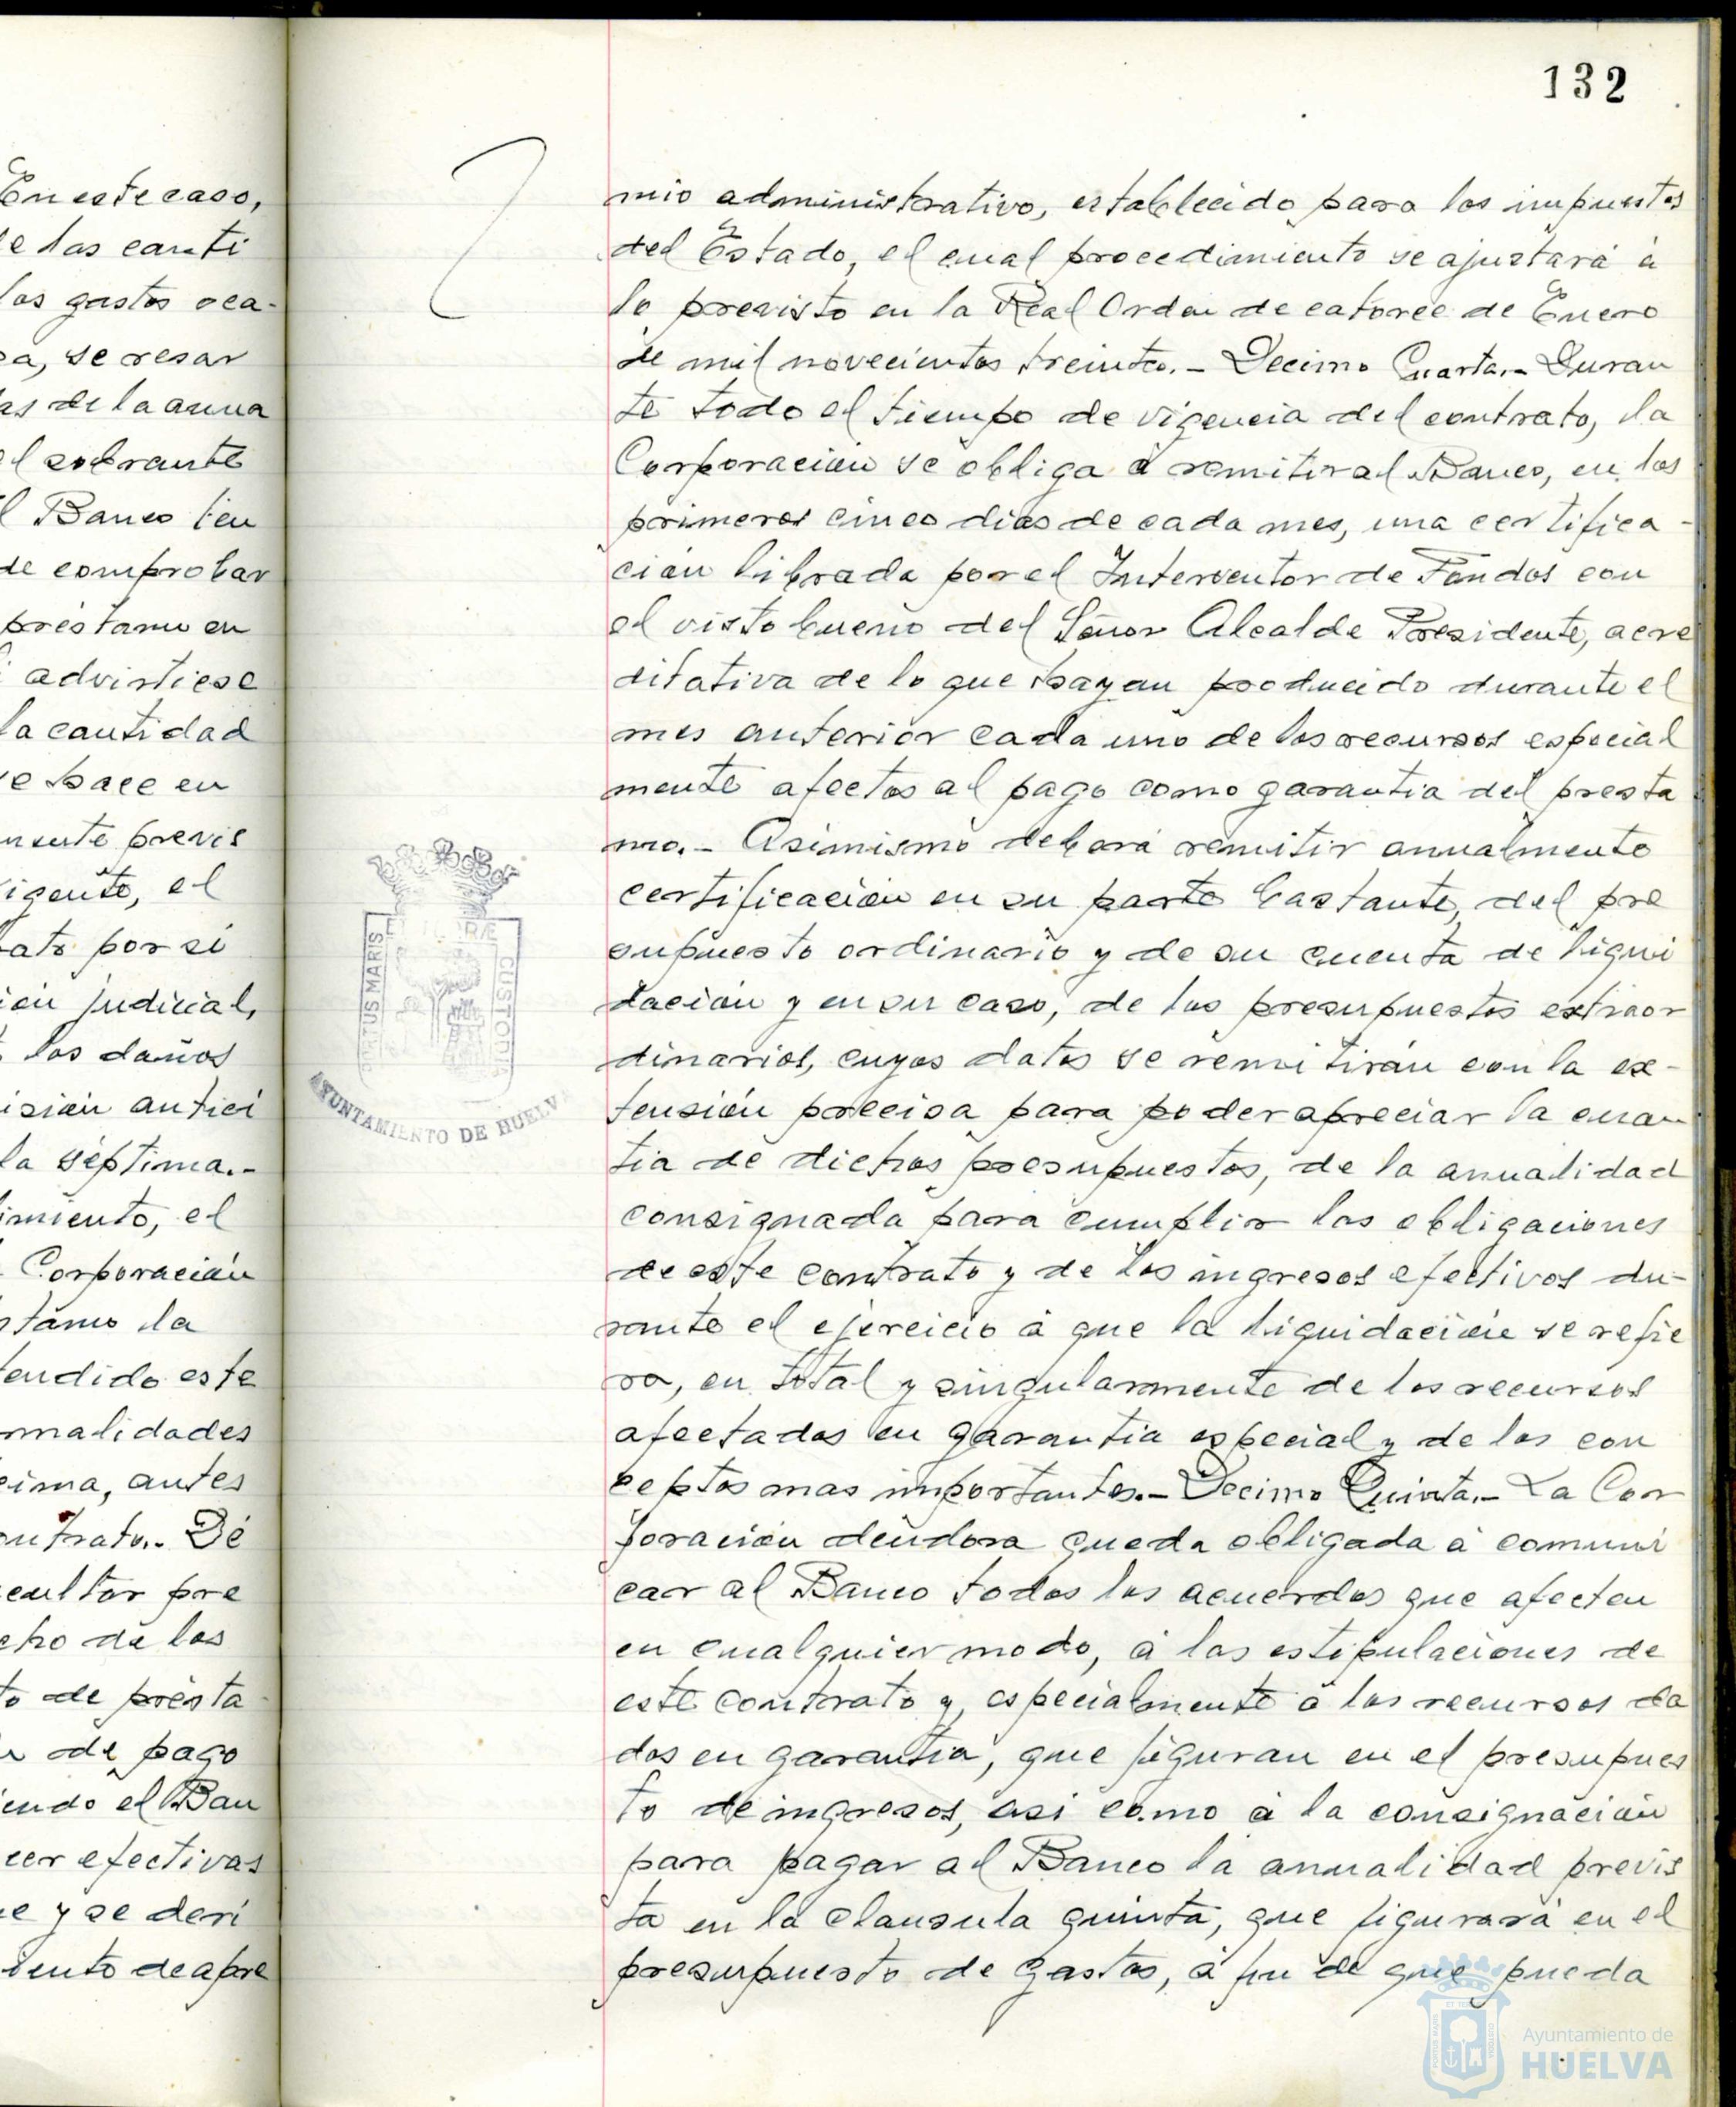 132
En este caso,
e las canti
los gastos oca-
a, se resar
as de la anua
el sobrante
l Banco ten
de comprobar
préstamo en
advirtiese
la cantidad
e hace en
mente previs
igente, el
ato por si
ión judicial,
los daños
isión antici
la séptima.-
imiento, el
Corporación
stamo la
endido este
rmalidades
cima, antes
ontrato.- Dé
cultor pre
cho de los
to de présta
de pago
iendo el Ban
cer efectivas
e y se deri
iento de apre
mio administrativo, establecido para los impuestos
del Estado, el cual procedimiento se ajustará á
lo previsto en la Real Orden de catorce de Enero
de mil novecientos treinta.- Decimo Cuarta.- Duran
te todo el tiempo de vigencia del contrato, la
Corporación se obliga á remitir al Banco, en los
primeros cinco dias de cada mes, una certifica-
ción librada por el Interventor de Fondos con
el visto bueno del Señor Alcalde Presidente, acre
ditativa de lo que hayan producido durante el
mes anterior cada uno de los recursos especial
mente afectos al pago como garantia del presta
mo.- Asimismo deberá remitir anualmente
certificación en su parte bastante, del pre
supuesto ordinario y de su cuenta de liqui
dación y en su caso, de los presupuestos extraor
dinarios, cuyos datos se remitirán con la ex-
tensión precisa para poder apreciar la cuan
tia de dichos presupuestos, de la anualidad
consignada para cumplir las obligaciones
de este contrato y de los ingresos efectivos du-
rante el ejercicio á que la liquidación se refie
ra, en total y singularmente de los recursos
afectados en garantia especial y de los con
ceptos mas importantes.- Decimo Quinta.- La Cor
poración deudora queda obligada á comuni
car al Banco todos los acuerdos que afecten
en cualquier modo, á las estipulaciones de
este contrato y, especialmente á los recursos da
dos en garantia, que figuran en el presupues
to de ingresos, asi como á la consignación
para pagar al Banco la anualidad previs
ta en la clausula quinta, que figurará en el
presupuesto de gastos, á fin de que pueda
PORTUS MARIS
CUSTODIA
AYUNTAMIENTO DE HUELVA
Ayuntamiento de
HUELVA